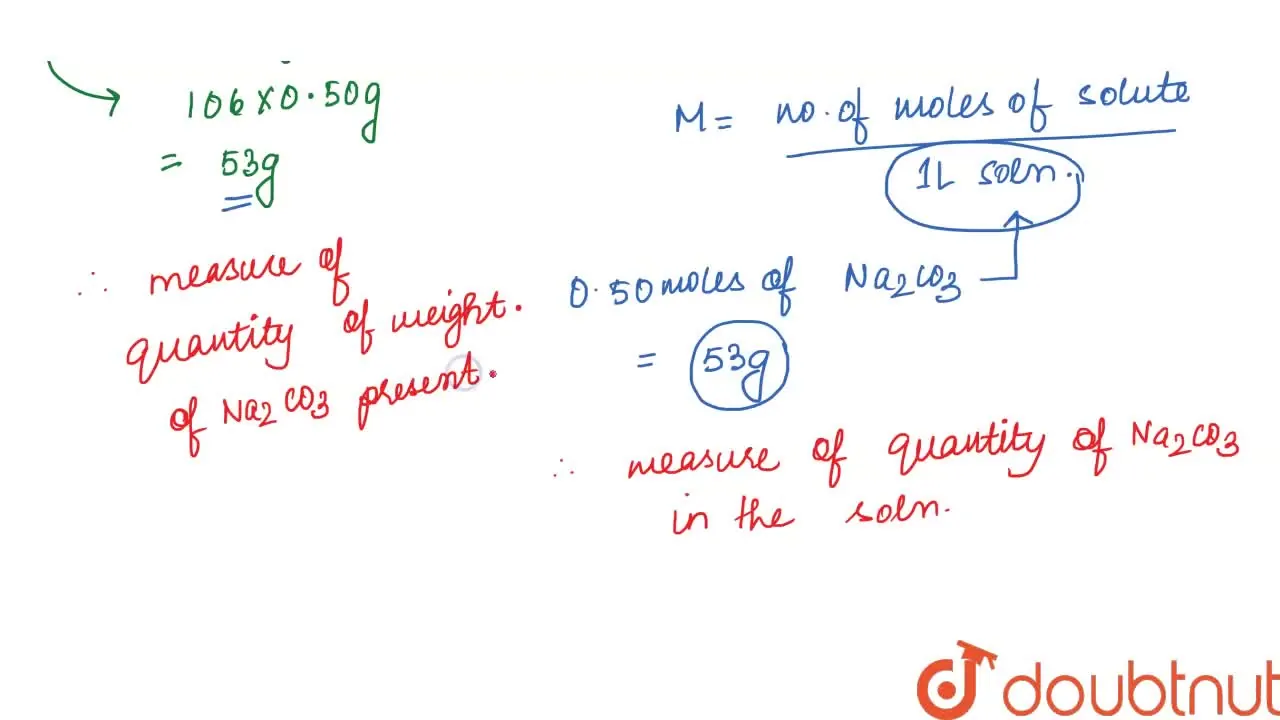 106 × 0.50g
= 53g
∴ measure of
quantity of weight.
of Na2CO3 present.
M = no. of moles of solute
1L soln.
0.50 moles of Na2CO3
= 53g
∴ measure of quantity of Na2CO3
in the soln.
doubtnut